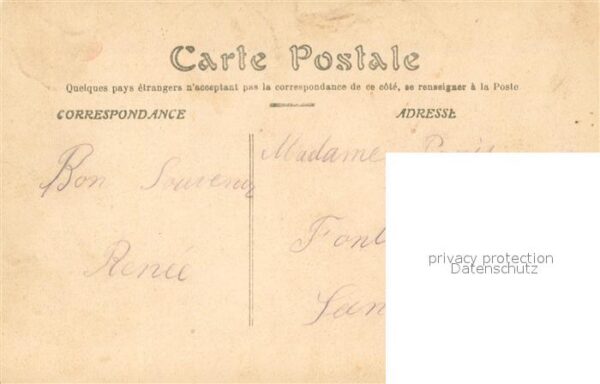 Carte Postale
Quelques pays étrangers n'acceptant pas la correspondance de ce côté, se renseigner à la Poste
CORRESPONDANCE
ADRESSE
Bon Souvenir
Renée
Madame
privacy protection
Datenschutz